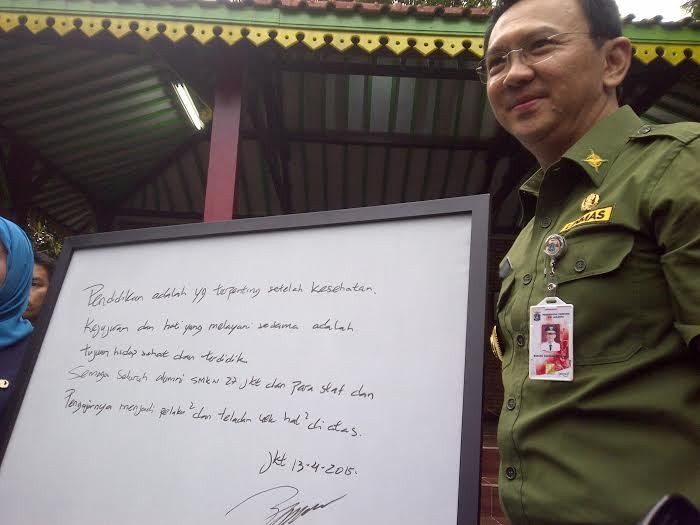 Pendidikan adalah yg terpenting setelah kesehatan.
Kejujuran dan hati yang melayani sesama adalah
tujuan hidup sehat dan terdidik
Semoga seluruh alumni SMKN 27 jkt dan para staf dan
Pengajarnya menjadi pelaku² dan teladan utk hal² di atas.
jkt 13-4-2015.